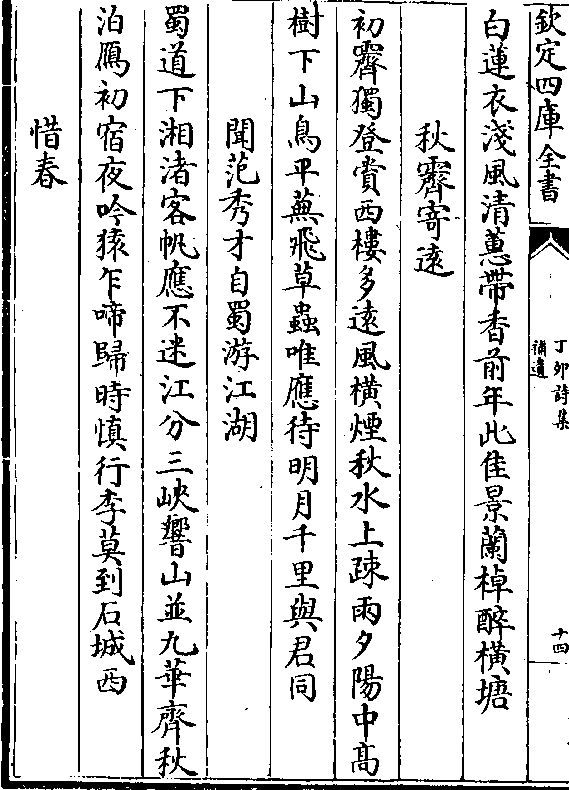 欽定四庫全書
丁卯詩集
補遺
十四
白蓮衣淺風清蕙帶香前年此佳景蘭棹醉橫塘
秋霽寄遠
初霽獨登賞西樓多遠風橫煙秋水上疎雨夕陽中髙
樹下山鳥平蕪飛草蟲唯應待明月千里與君同
聞范秀才自蜀游江湖
蜀道下湘渚客帆應不迷江分三峽響山並九華齊秋
泊鴈初宿夜吟猿乍啼歸時慎行李莫到石城西
惜春